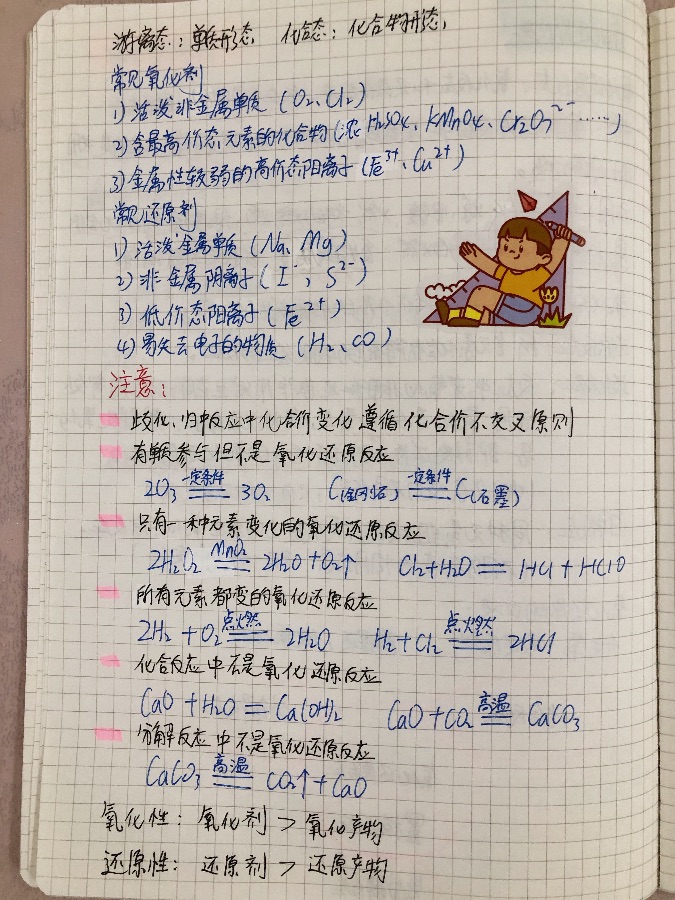 游离态：单质形态 化合态：化合物形态
常见氧化剂
1) 活泼非金属单质 (O₂、Cl₂)
2) 含最高价态元素的化合物 (浓H₂SO₄、KMnO₄、Cr₂O₇²⁻……)
3) 金属性较弱的高价态阳离子 (Fe³⁺、Cu²⁺)
常见还原剂
1) 活泼金属单质 (Na、Mg)
2) 非金属阴离子 (I⁻, S²⁻)
3) 低价态阳离子 (Fe²⁺)
4) 易失去电子的物质 (H₂、CO)
注意：
歧化、归中反应中化合价变化遵循化合价不交叉原则
有单质参与但不是氧化还原反应
2O₃ 一定条件══ 3O₂ C(金刚石) 一定条件══ C(石墨)
只有一种元素变化的氧化还原反应
2H₂O₂ MnO₂══ 2H₂O+O₂↑ Cl₂+H₂O══HCl+HClO
所有元素都变的氧化还原反应
2H₂+O₂ 点燃══ 2H₂O H₂+Cl₂ 点燃══ 2HCl
化合反应中不是氧化还原反应
CaO+H₂O=Ca(OH)₂ CaO+CO₂ 高温══ CaCO₃
分解反应中不是氧化还原反应
CaCO₃ 高温══ CO₂↑+CaO
氧化性：氧化剂>氧化产物
还原性：还原剂>还原产物